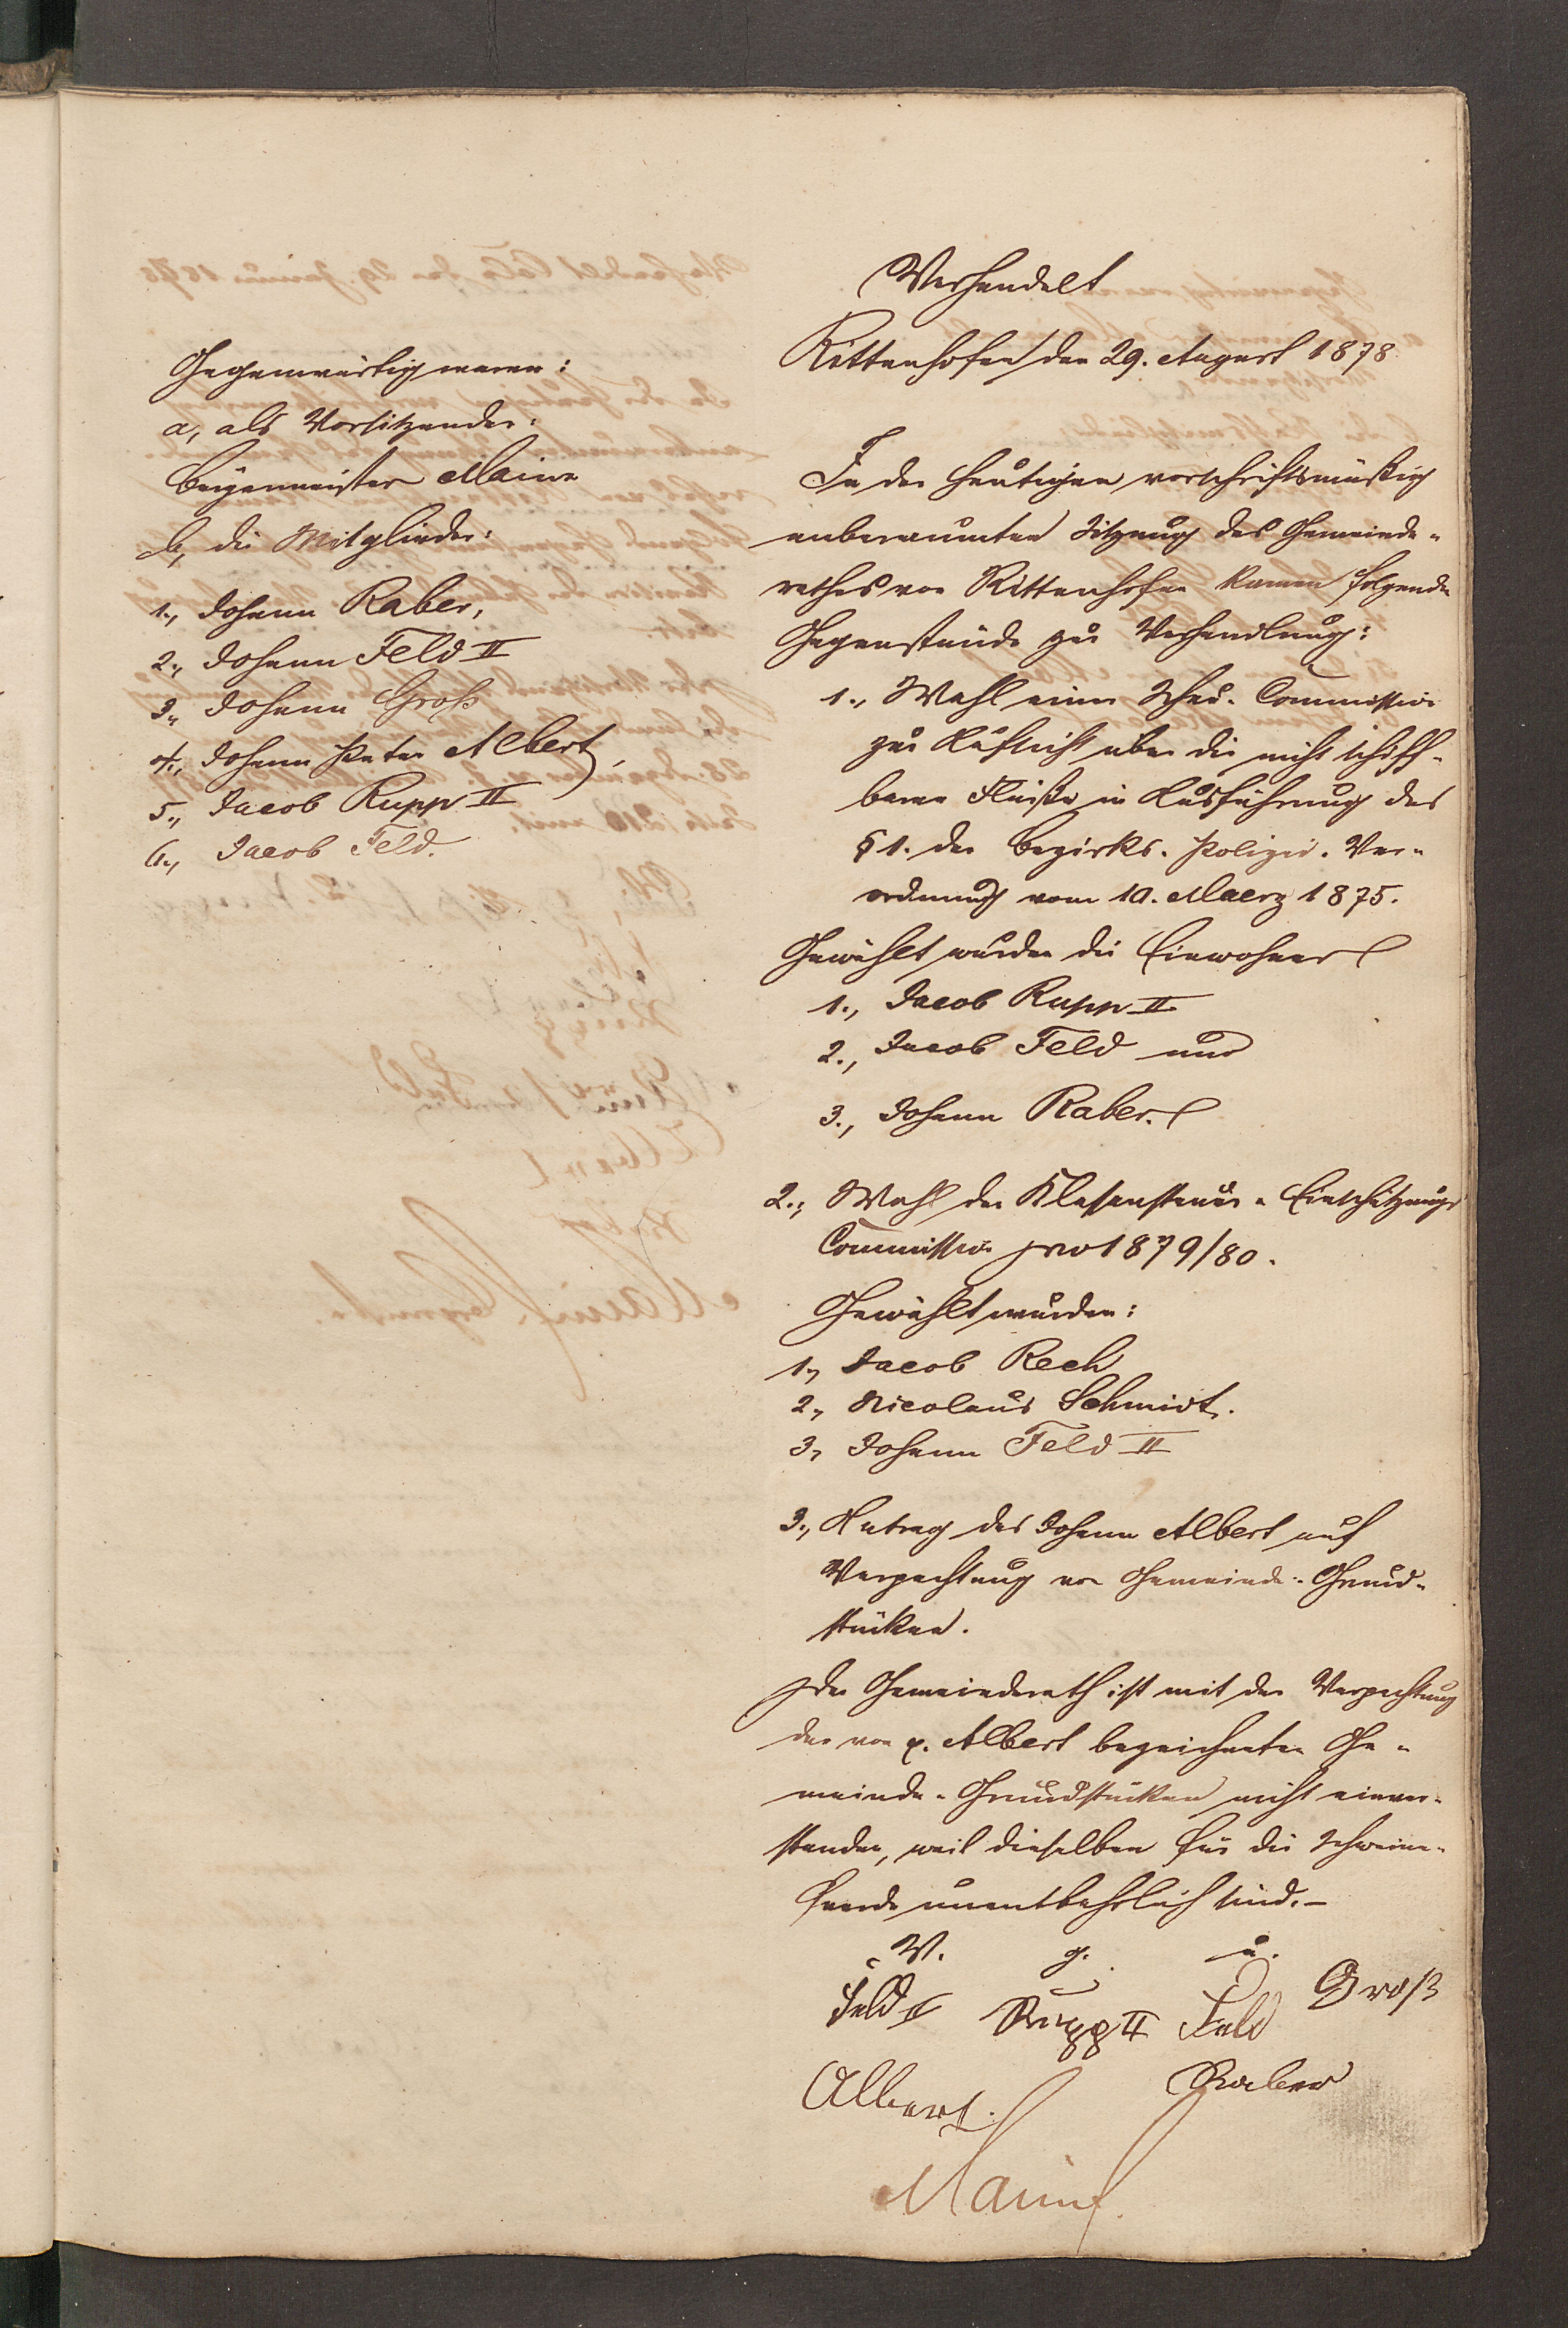 Gegenwärtig waren:
a, als Vorsitzender:
Bürgermeister Maine
b, die Mitglieder:
1., Johann Raber,
2., Johann Feld II
3., Johann Groß
4., Johann Peter Albert,
5., Jacob Rupp II
6., Jacob Feld.
Verhandelt
Rittenhofen den 29. August 1878
In der heutigen vorschriftsmäßig
anberaumten Sitzung des Gemeinde-
rathes von Rittenhofen kamen folgende
Gegenstände zur Verhandlung:
1., Wahl einer Schau-Commission
zur Aufsicht über die nicht schiff-
baren Flüße in Ausführung des
§ 1. der Bezirks-Polizei-Ver-
ordnung vom 10. Maerz 1875.
Gewählt wurden die Einwohner
1., Jacob Rupp II
2., Jacob Feld und
3., Johann Raber.
2., Wahl der Klassensteuer-Einschätzungs
Commission pro 1879/80.
Gewählt wurden:
1., Jacob Rech
2., Nicolaus Schmidt.
3., Johann Feld II
3., Antrag des Johann Albert auf
Verpachtung von Gemeinde-Grund-
stücken.
Der Gemeinderath ist mit der Verpachtung
der von p. Albert bezeichneten Ge-
meinde-Grundstücken nicht einver-
standen, weil dieselben für die Schweine-
heerde unentbehrlich sind.-
V. g. u.
Feld II Rupp II Feld Groß
Albert. Raber